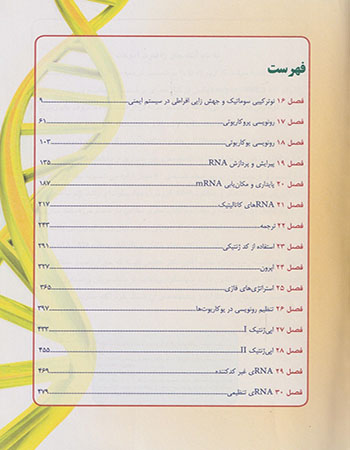 فهرست
فصل ۱۶ نوترکیبی سوماتیک و جهش زایی افراطی در سیستم ایمنی ۹
فصل ۱۷ رونویسی پروکاریوتی ۶۱
فصل ۱۸ رونویسی یوکاریوتی ۱۰۳
فصل ۱۹ پیرایش و پردازش RNA ۱۳۵
فصل ۲۰ پایداری و مکان‌یابی mRNA ۱۸۷
فصل ۲۱ RNAهای کاتالیتیک ۲۱۷
فصل ۲۲ ترجمه ۲۴۳
فصل ۲۳ استفاده از کد ژنتیکی ۲۹۱
فصل ۲۴ اپرون ۳۳۷
فصل ۲۵ استراتژی‌های فاژی ۳۶۵
فصل ۲۶ تنظیم رونویسی در یوکاریوت‌ها ۳۹۷
فصل ۲۷ اپی‌ژنتیک I ۴۳۳
فصل ۲۸ اپی‌ژنتیک II ۴۵۵
فصل ۲۹ RNAی غیر کدکننده ۴۶۹
فصل ۳۰ RNAی تنظیمی ۴۷۹